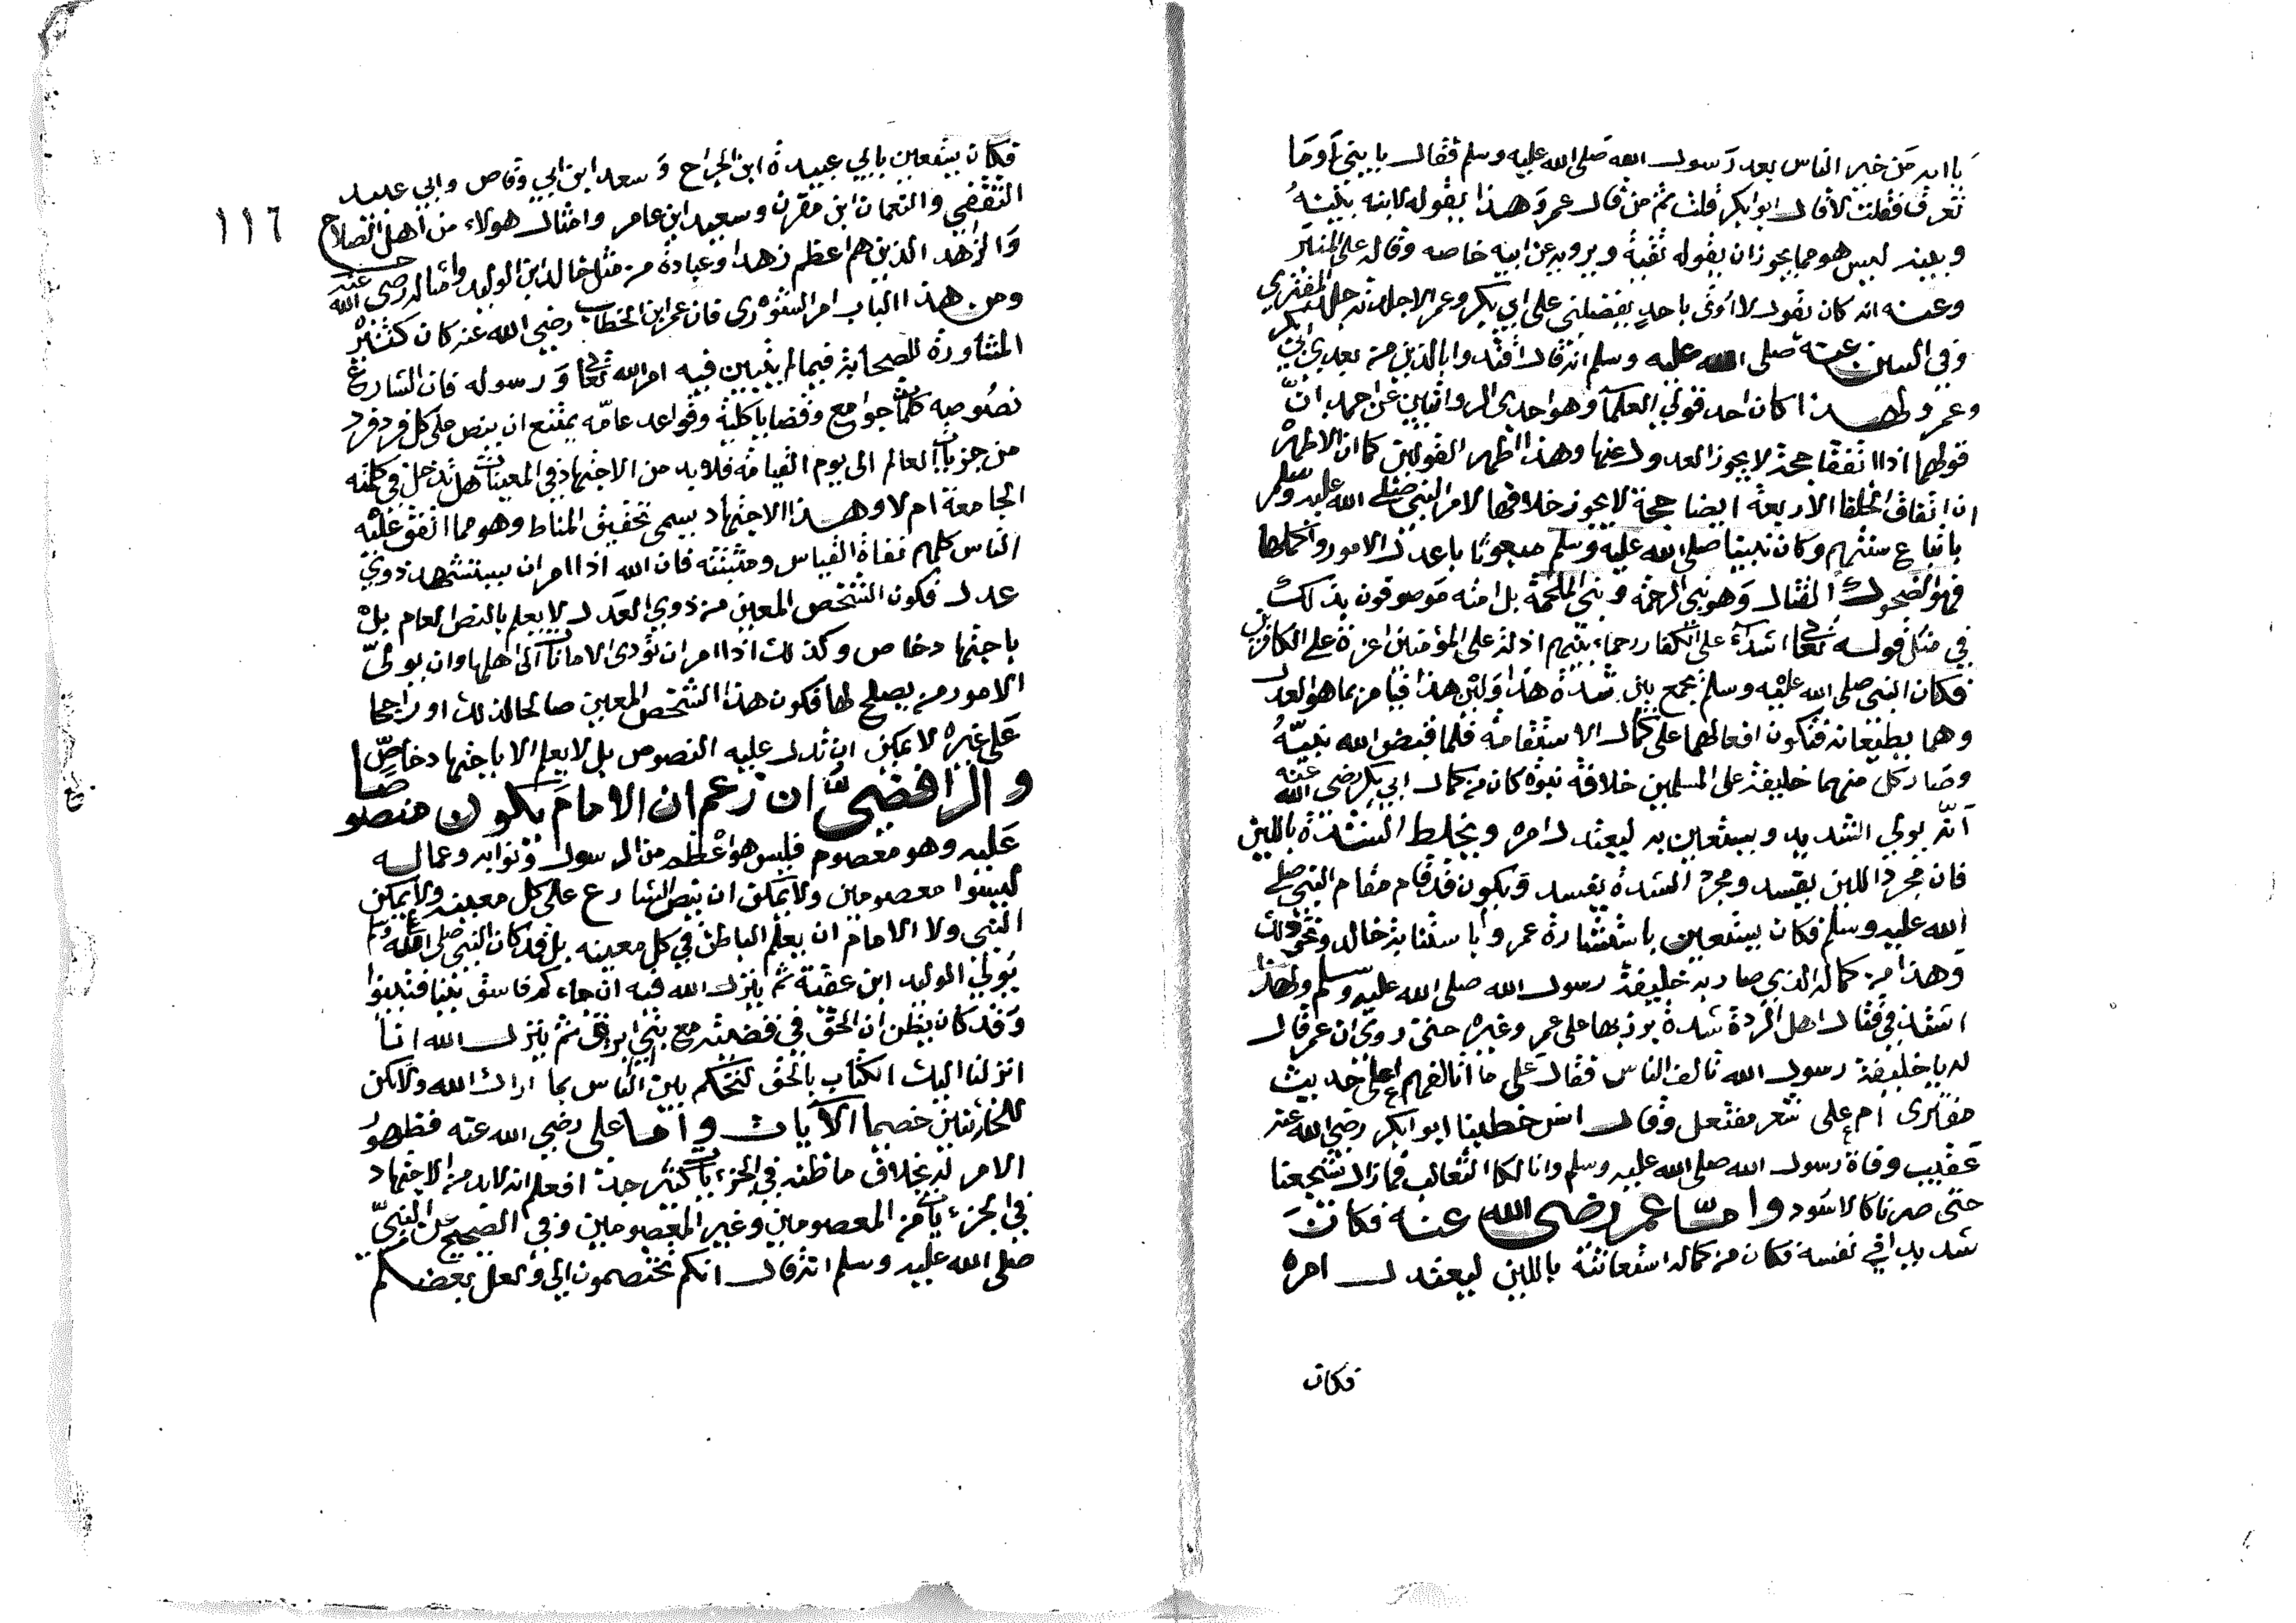 يا ابه من خير الناس بعد رسول الله صلى الله عليه وسلم فقال يا بني اوما
تعرف فقلت لا قال ابو بكر قلت ثم من قال عمر وهذا يقوله لابنه بينه
وبينه ليس هو مما يجوز ان يقوله تقية ويرويه عن ابيه خاصه وقاله على المنبر
وعنه انه كان يقول لا اوتى باحد يفضلني على ابي بكر وعمر الا جلدته جلد المفتري
وفي السنن عنه صلى الله عليه وسلم انه قال اقتدوا بالذين من بعدي ابي بكر
وعمر ولهذا كان احد قولي العلمآ وهو احدى الروايتين عن احمد انّ
قولهما اذا اتفقا حجة لا يجوز العدول عنها وهذا اظهر القولين كما ان الاظهر
ان اتفاق الخلفا الاربعة ايضا حجة لا يجوز خلافها لامر النبي صلى الله عليه وسلم
باتباع سنتهم وكان نبينا صلى الله عليه وسلم مبعوثا باعدل الامور واكملها
فهو الضحوك القتال وهو نبي الرحمة ونبي الملحمة بل امته موصوفون بذلك
في مثل قوله تعا اشدآء على الكفار رحماء بينهم اذلة على المؤمنين اعزة على الكافرين
فكان النبي صلى الله عليه وسلم يجمع بين شدة هذا ولين هذا فيامر بما هو العدل
وهما يطيعانه فتكون افعالهما على كمال الاستقامة فلما قبض الله نبيّه
وصار كل منهما خليفة على المسلمين خلافة نبوة كان من كمال ابي بكر رضي الله عنه
انّه يولي الشديد ويستعين به ليعتدل امره ويخلط الشدة باللين
فان مجرد اللين يفسد ومجرد الشدة يفسد ويكون قد قام مقام النبي صلى
الله عليه وسلم فكان يستعين باستشارة عمر وباستنابة خالد ونحو ذلك
وهذا من كماله الذي صار به خليفة رسول الله صلى الله عليه وسلم ولهذا
اشتد في قتال اهل الردة شدة برز بها على عمر وغيره حتى روي ان عمر قال
له يا خليفة رسول الله تالف الناس فقال على ما اتالفهم اعلى حديث
مفترى ام على شعر مفتعل وقال انس خطبنا ابو بكر رضي الله عنه
عقيب وفاة رسول الله صلى الله عليه وسلم وانا لكالثعالب فما زال يشجعنا
حتى صرنا كالاسود واما عمر رضي الله عنه فكان
شديدا في نفسه فكان من كماله استعانته باللين ليعتدل امره
فكان
١١٦
فكان يستعين بابي عبيدة ابن الجراح وسعد ابن ابي وقاص وابي عبيد
الثقفي والنعمان ابن مقرن وسعيد ابن عامر وامثال هولاء من اهل الصلاح
والزهد الذين هم اعظم زهدا وعبادة من مثل خالد ابن الوليد وامثاله رضي الله عنه
ومن هذا الباب امر الشورى فان عمر ابن الخطاب رضي الله عنه كان كثير
المشاورة للصحابة فيما لم يتبين فيه امر الله تعا ورسوله فان الشارع
نصوصه كلمات جوامع وقضايا كلية وقواعد عامّه يمتنع ان ينص على كل فرد فرد
من جزيات العالم الى يوم القيامة فلا بد من الاجتهاد في المعينات هل تدخل في كلمته
الجامعة ام لا وهذا الاجتهاد يسمى تحقيق المناط وهو مما اتفق عليه
الناس كلهم نفاة القياس ومثبتته فان الله اذا امر ان يستشهد ذوي
عدل فكون الشخص المعين من ذوي العدل لا يعلم بالنص العام بل
باجتهاد خاص وكذلك اذا امر ان تؤدى الامانات الى اهلها وان يولّى
الامور من يصلح لها فكون هذا الشخص المعين صالحا لذلك او راجحا
على غيره لا يمكن ان تدل عليه النصوص بل لا يعلم الا باجتهاد خاصّ
والرافضي ان زعم ان الامام يكون منصوصا
عليه وهو معصوم فليس هو اعظم من الرسول ونوابه وعماله
ليسوا معصومين ولا يمكن ان ينص الشارع على كل معينه ولا يمكن
النبي ولا الامام ان يعلم الباطن في كل معينه بل قد كان النبي صلى الله عليه وسلم
يولي الوليد ابن عقبة ثم ينزل الله فيه ان جاءكم فاسق بنبا فتبينوا
وقد كان يظن ان الحق في قضيته مع بني ابيرق ثم ينزل الله انا
انزلنا اليك الكتاب بالحق لتحكم بين الناس بما اراك الله ولا تكن
للخائنين خصيما الآيات واما علي رضي الله عنه فظهور
الامر له بخلاف ما ظنه في الجزئيات كثير جدا فعلم انه لا بد من الاجتهاد
في الجزئيات من المعصومين وغير المعصومين وفي الصحيح عن النبيّ
صلى الله عليه وسلم انه قال انكم تختصمون الي ولعل بعضكم